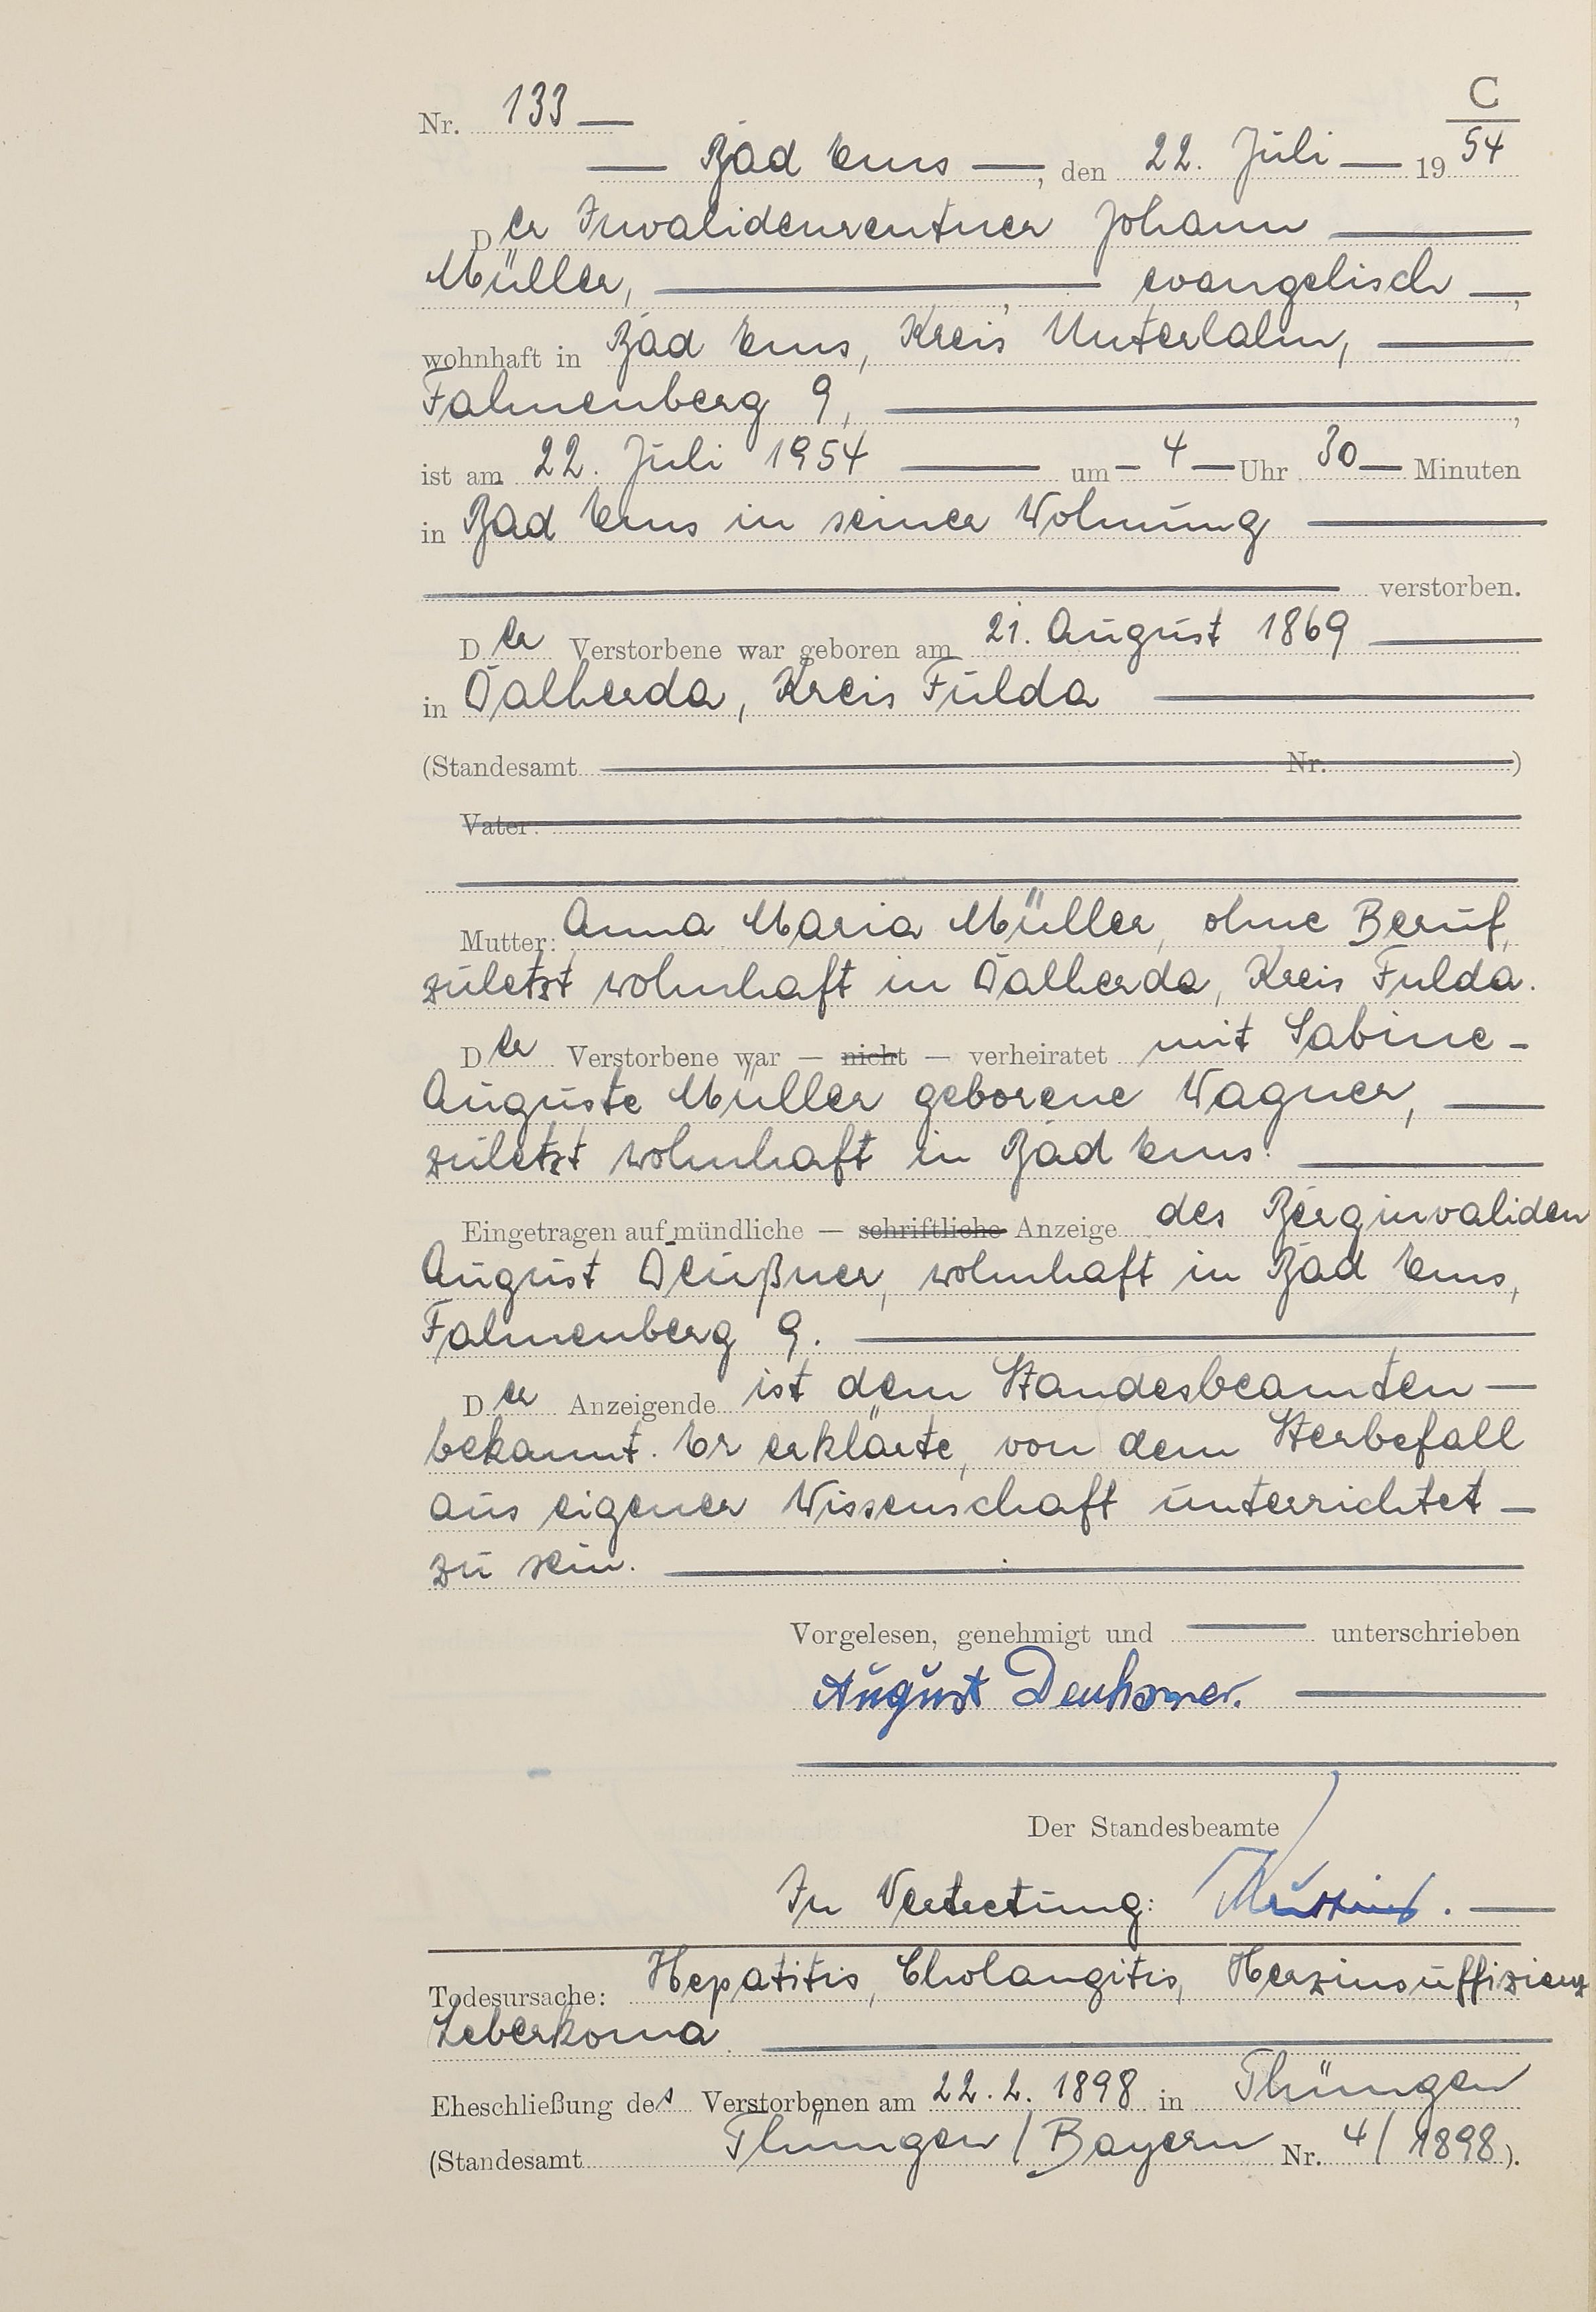 C
Nr. 133
Bad Ems, den 22. Juli 1954
Der Invalidenrentner Johann
Müller, , evangelisch ,
wohnhaft in Bad Ems, Kreis Unterlahn,
Fahnenberg 9, ,
ist am 22. Juli 1954 um 4 Uhr 30 Minuten
in Bad Ems in seiner Wohnung
verstorben.
Der Verstorbene war geboren am 21. August 1869
in Dalherda, Kreis Fulda
(Standesamt Nr. )
Vater:
Mutter: Anna Maria Müller, ohne Beruf,
zuletzt wohnhaft in Dalherda, Kreis Fulda.
Der Verstorbene war — nicht — verheiratet mit Sabine
Auguste Müller geborene Wagner,
zuletzt wohnhaft in Bad Ems.
Eingetragen auf mündliche — schriftliche Anzeige des Berginvaliden
August Deußner, wohnhaft in Bad Ems,
Fahnenberg 9.
Der Anzeigende ist dem Standesbeamten
bekannt. Er erklärte, von dem Sterbefall
aus eigener Wissenschaft unterrichtet
zu sein.
Vorgelesen, genehmigt und unterschrieben
August
Der Standesbeamte
In Vertretung:
Todesursache: Hepatitis, Cholangitis, Herzinsuffizienz
Leberkoma
Eheschließung des Verstorbenen am 22.2.1898 in Thüngen
(Standesamt Thüngen / Bayern Nr. 4/1898).